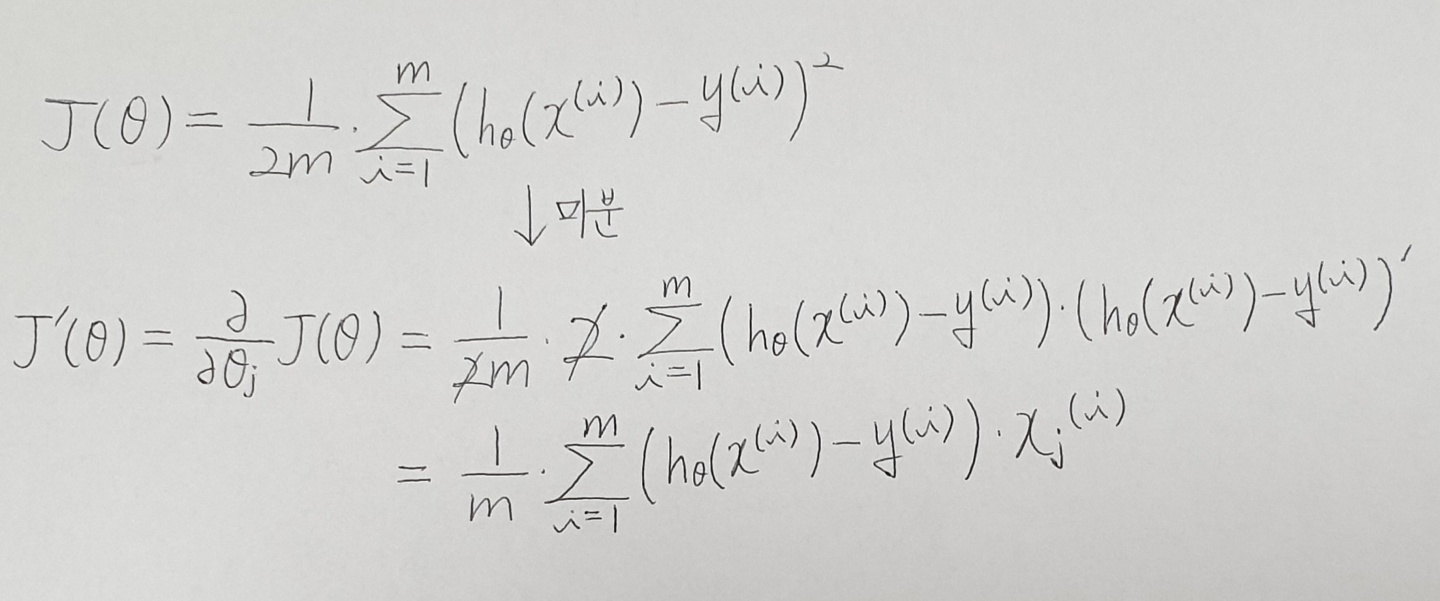 J(θ) = \frac{1}{2m} \cdot \sum_{i=1}^{m} (h_θ(x^{(i)}) - y^{(i)})^2
↓ 미분
J'(θ) = \frac{∂}{∂θ_j} J(θ) = \frac{1}{\cancel{2}m} \cdot \cancel{2} \cdot \sum_{i=1}^{m} (h_θ(x^{(i)}) - y^{(i)}) \cdot (h_θ(x^{(i)}) - y^{(i)})'
= \frac{1}{m} \cdot \sum_{i=1}^{m} (h_θ(x^{(i)}) - y^{(i)}) \cdot x_j^{(i)}